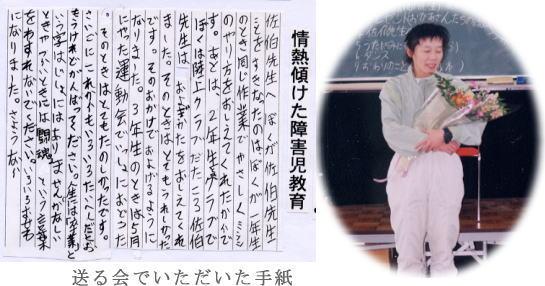 情熱傾けた障害児教育
佐伯先生へ ぼくが佐伯先生
ことをすきなったのはぼくが一年生
のとき同じ作業でやさしくミシン
のやり方をおしえてくれたからで
す。あとは、2年生がクラブで
ぼくは陸上クラブだたころ佐伯
先生は およぎかたをおしえてくれ
ました。そのときはとてもうれしかった
です。そのおかげでおよげるように
なりました。3年生のときは5月
にやった運動会でいっしょにおどった
。そのときはとてもたのしかったです。
さいごにこれからもいろいろたいへんだとお
もうけれどがんばってください。人生には卒業と
いう字はじしょにはありませんがかなしい
ときやつらいときには闘魂 という言葉
をわすれないでください。いろいろおせわ
になりました。さようなら
送る会でいただいた手紙
おかあさんたち
佐伯先生
ダンス
おわりのことば